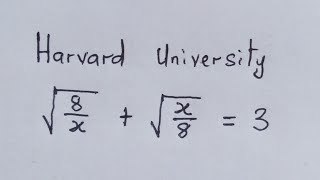 Harvard University
√(8/x) + √(x/8) = 3